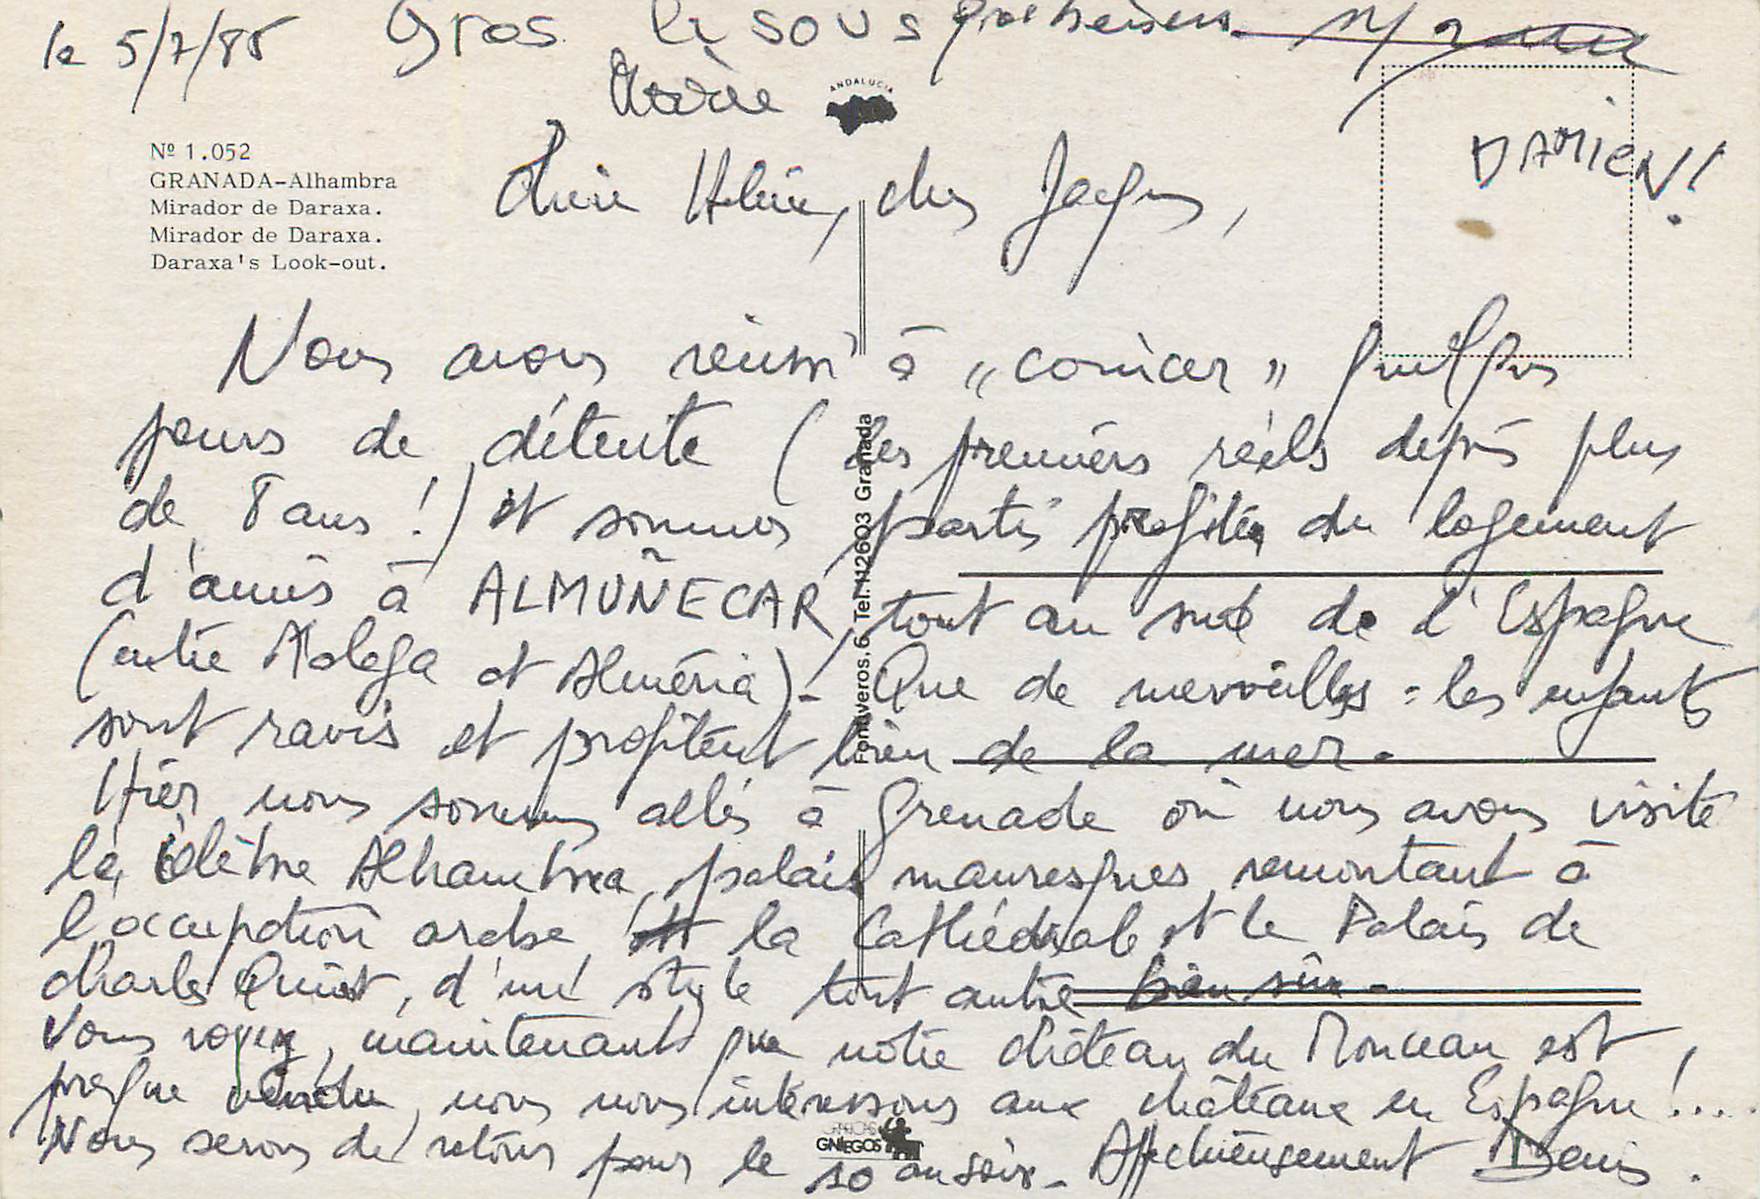 le 5/7/88 Gros bisous
Marie
ANDALUCIA
DAMIEN!
Nº 1.052
GRANADA-Alhambra
Mirador de Daraxa.
Mirador de Daraxa.
Daraxa's Look-out.
Chère Hélène, cher Jacques,
Nous avons réussi à "coincer" quelques
jours de détente (les premiers réels depuis plus
de 8 ans!) et sommes partis profiter du logement
d'amis à ALMUÑECAR, tout au sud de l'Espagne
(entre Malaga et Alméria). Que de merveilles : les enfants
sont ravis et profitent bien de la mer.
Hier nous sommes allés à Grenade où nous avons visité
le célèbre Alhambra, palais mauresques remontant à
l'occupation arabe, la Cathédrale et le Palais de
Charles Quint, d'un style tout autre bien sûr.
Vous voyez, maintenant que notre château du Monceau est
presque vendu, nous nous intéressons aux châteaux en Espagne!....
Nous serons de retour pour le 10 au soir. Affectueusement Denis.
Fontiveros, 6. Tel. 112603 Granada
GRIEGOS